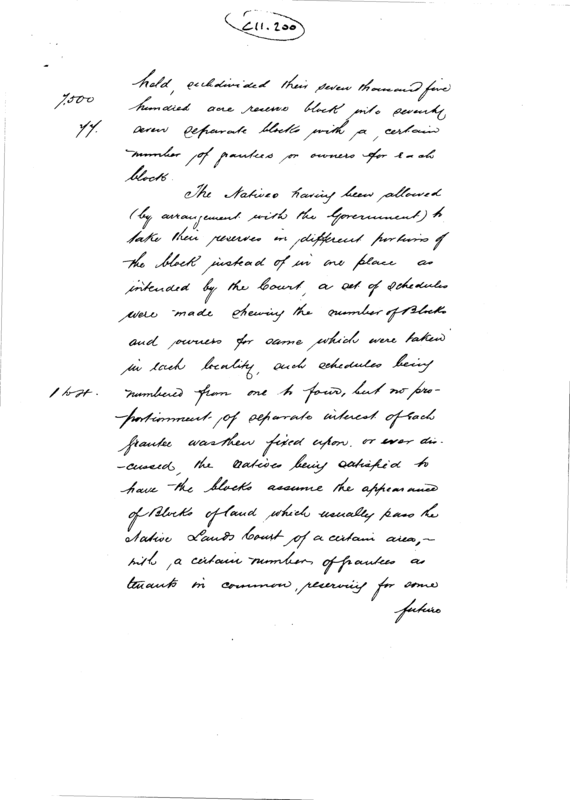 C11.200
held, subdivided their seven thousand five
7,500
hundred acre reserve block into seventy
77.
seven separate blocks with a certain
number of grantees or owners for each
block.
The Natives having been allowed
(by arrangement with the Government) to
take their reserves in different portions of
the block instead of in one place as
intended by the Court, a set of schedules
were made shewing the number of Blocks
and owners for same which were taken
in each locality, such schedules being
numbered from one to four, but no pro-
-portionment of separate interest of each
grantee was then fixed upon or ever dis-
-cussed, the natives being satisfied to
have the blocks assume the appearance
of Blocks of land which usually pass the
Native Lands Court of a certain area,-
with a certain number of grantees as
tenants in common, reserving for some
future